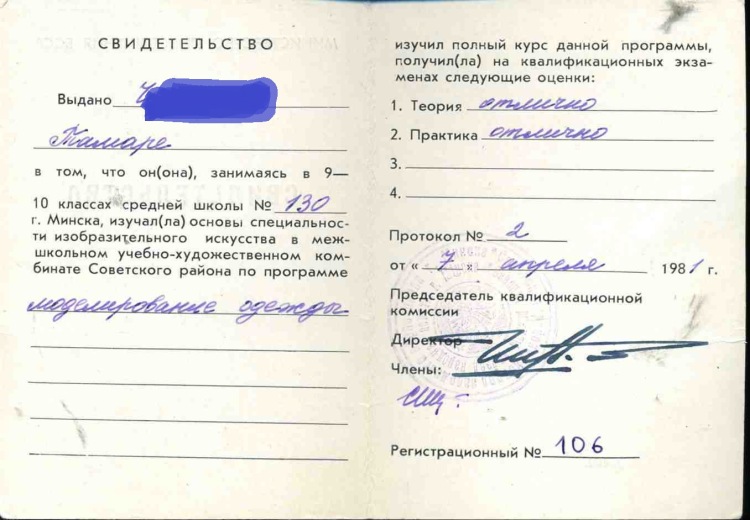 СВИДЕТЕЛЬСТВО
Выдано
Тамаре
в том, что он(она), занимаясь в 9—
10 классах средней школы № 130
г. Минска, изучал(ла) основы специальнос-
ти изобразительного искусства в меж-
школьном учебно-художественном ком-
бинате Советского района по программе
моделирование одежды
изучил полный курс данной программы,
получил(ла) на квалификационных экза-
менах следующие оценки:
1. Теория отлично
2. Практика отлично
3.
4.
Протокол № 2
от « 7 » апреля 1981 г.
Председатель квалификационной
комиссии
Директор
Члены:
Регистрационный № 106